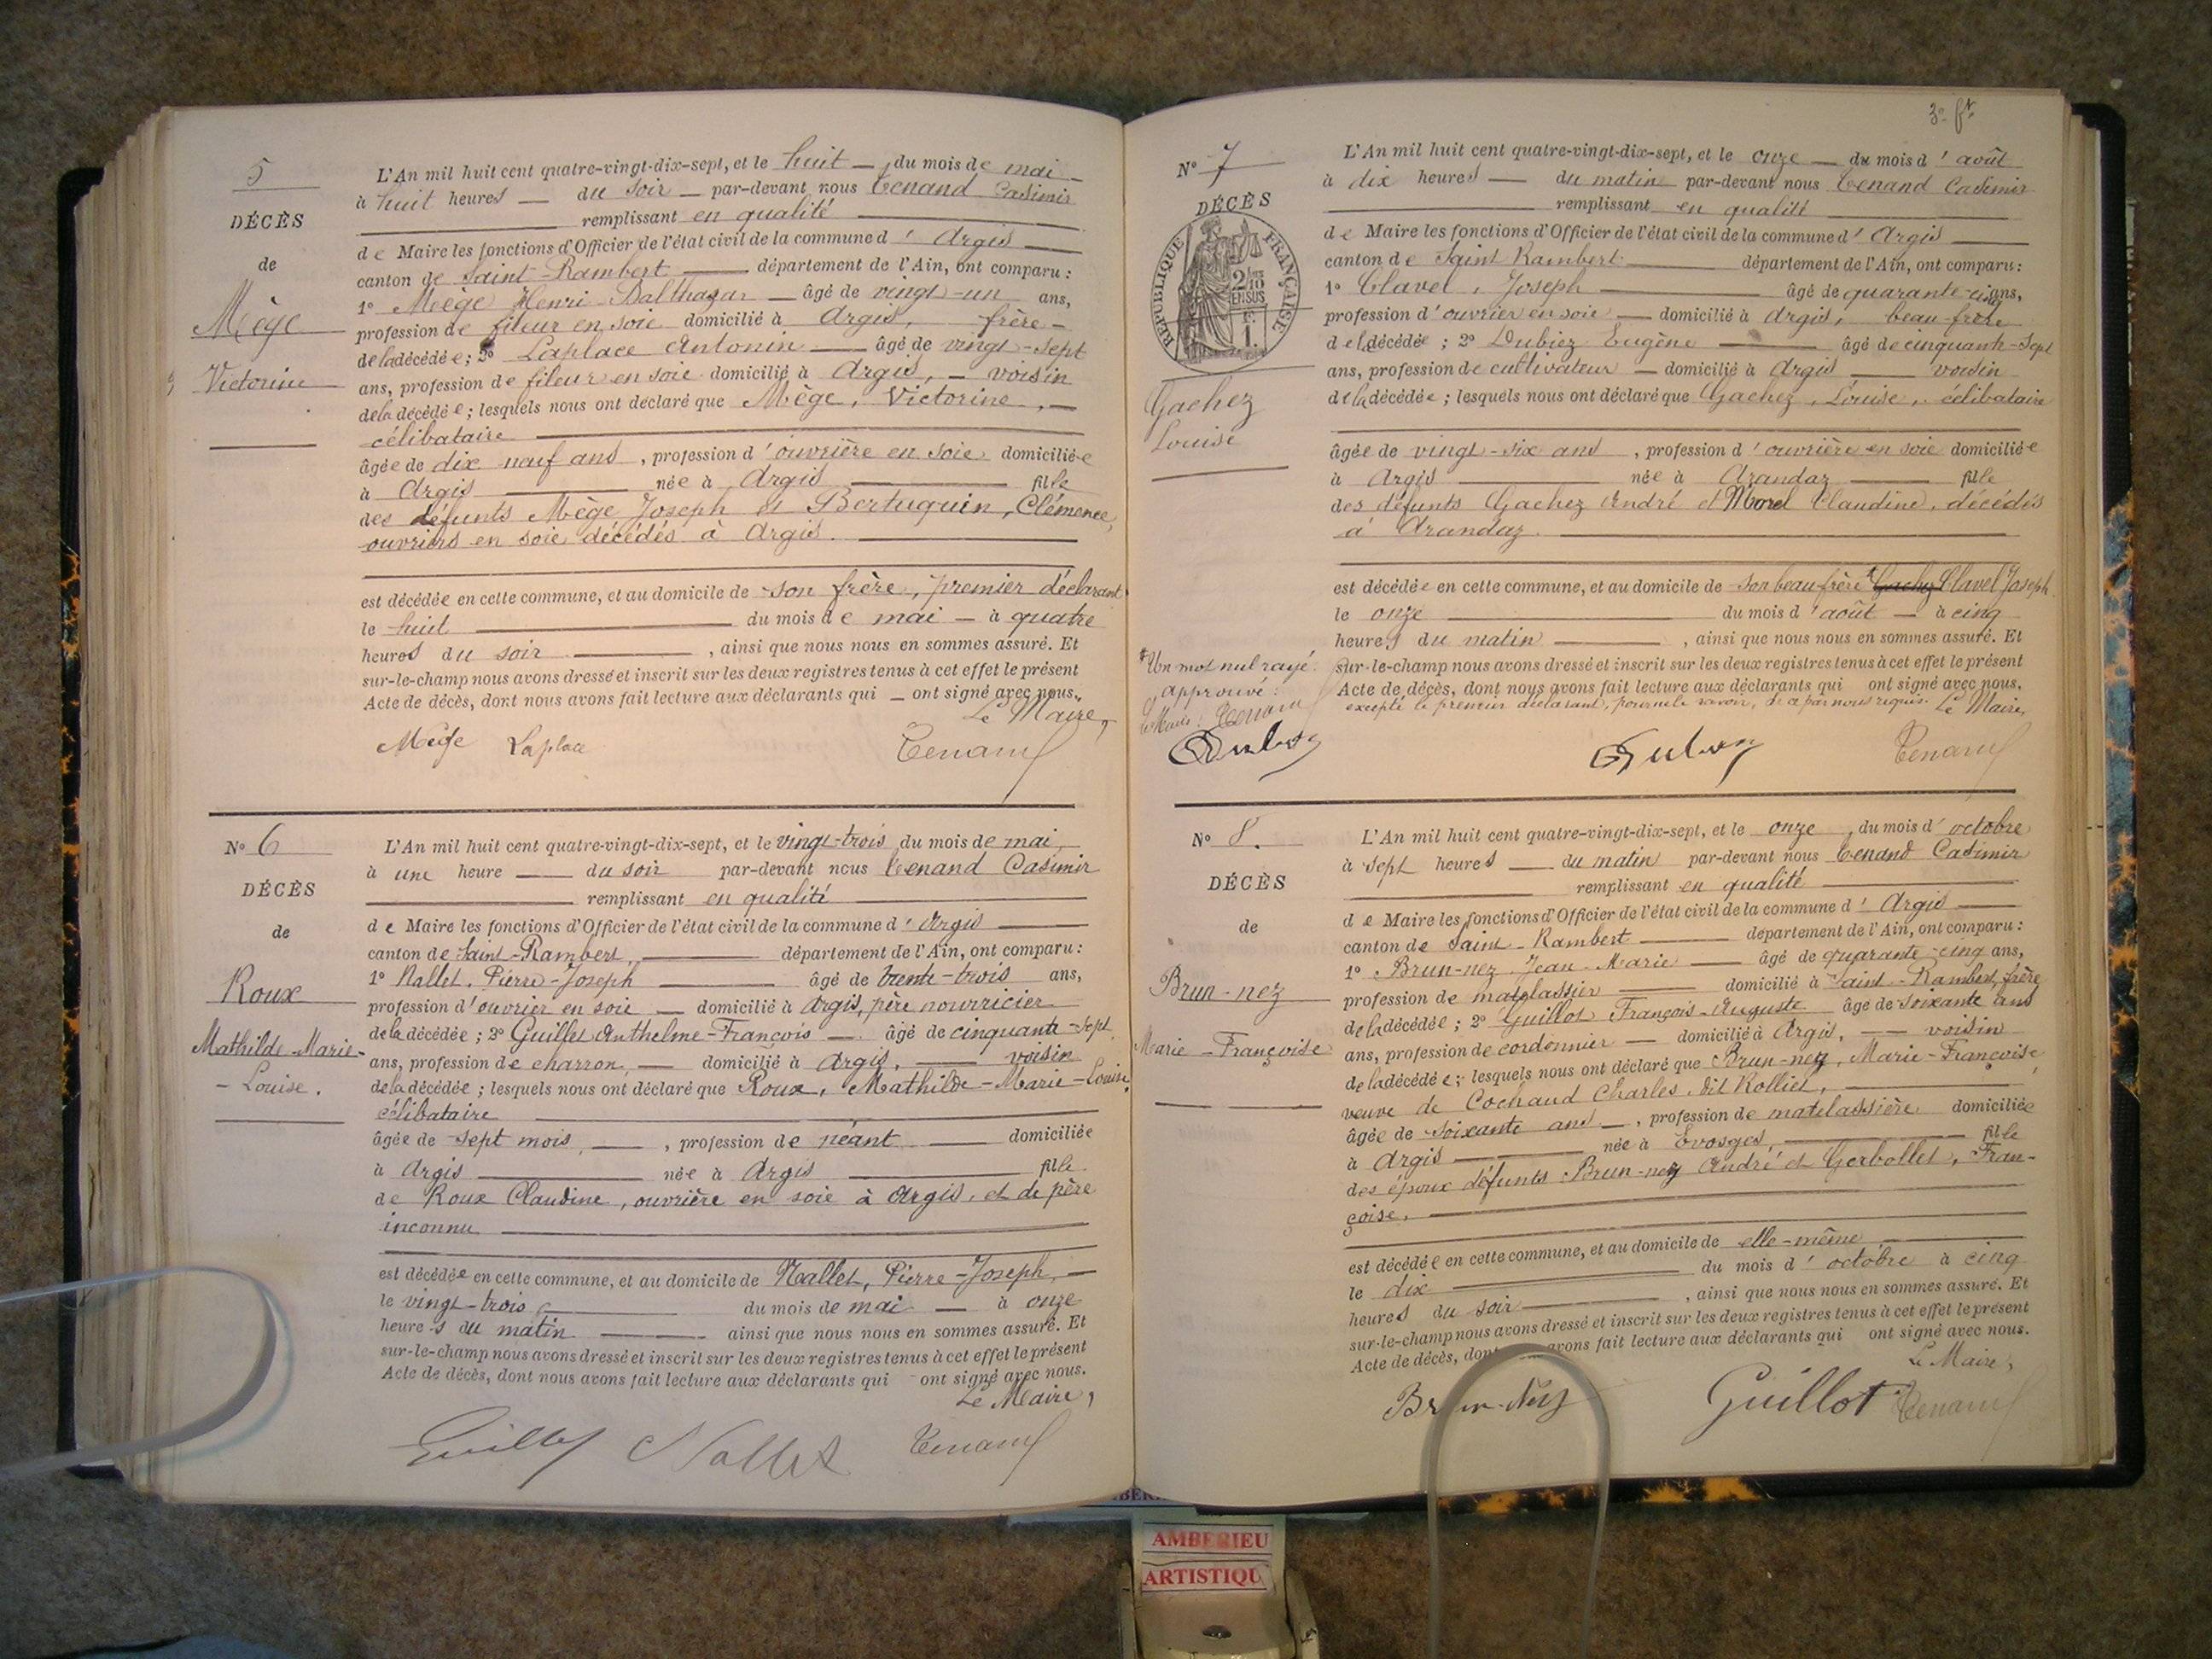 5
DÉCÈS
de
Mège
Victorine
L'An mil huit cent quatre-vingt-dix-sept, et le huit — du mois de mai —
à huit heures — du soir — par-devant nous Tenand Casimir
remplissant en qualité
de Maire les fonctions d'Officier de l'état civil de la commune d'Argis
canton de Saint-Rambert — département de l'Ain, ont comparu :
1° Mège Henri-Balthazar — âgé de vingt-un ans,
profession de fileur en soie domicilié à Argis, frère —
de la décédée ; 2° Laplace Antonin — âgé de vingt-sept
ans, profession de fileur en soie domicilié à Argis, — voisin
de la décédée ; lesquels nous ont déclaré que Mège, Victorine, —
célibataire
âgée de dix neuf ans, profession d'ouvrière en soie domiciliée
à Argis — née à Argis — fille
des défunts Mège Joseph et Bertuquin, Clémence,
ouvriers en soie décédés à Argis.
est décédée en cette commune, et au domicile de son frère, premier déclarant
le huit — du mois de mai — à quatre
heures du soir —, ainsi que nous nous en sommes assuré. Et
sur-le-champ nous avons dressé et inscrit sur les deux registres tenus à cet effet le présent
Acte de décès, dont nous avons fait lecture aux déclarants qui — ont signé avec nous.
Le Maire,
Mège Laplace Tenand
N° 6
DÉCÈS
de
Roux
Mathilde-Marie-
-Louise.
L'An mil huit cent quatre-vingt-dix-sept, et le vingt-trois du mois de mai,
à une heure — du soir par-devant nous Tenand Casimir
remplissant en qualité
de Maire les fonctions d'Officier de l'état civil de la commune d'Argis
canton de Saint-Rambert, — département de l'Ain, ont comparu :
1° Nallet, Pierre-Joseph — âgé de trente-trois ans,
profession d'ouvrier en soie — domicilié à Argis, père nourricier
de la décédée ; 2° Guillet Anthelme-François — âgé de cinquante-sept
ans, profession de charron, — domicilié à Argis, — voisin
de la décédée ; lesquels nous ont déclaré que Roux, Mathilde-Marie-Louise,
célibataire
âgée de sept mois, —, profession de néant — domiciliée
à Argis — née à Argis — fille
de Roux Claudine, ouvrière en soie à Argis, et de père
inconnu
est décédée en cette commune, et au domicile de Nallet, Pierre-Joseph, —
le vingt-trois — du mois de mai — à onze
heures du matin — ainsi que nous nous en sommes assuré. Et
sur-le-champ nous avons dressé et inscrit sur les deux registres tenus à cet effet le présent
Acte de décès, dont nous avons fait lecture aux déclarants qui - ont signé avec nous.
Le Maire,
Guillet Nallet Tenand
3e ft
N° 7
DÉCÈS
RÉPUBLIQUE FRANÇAISE
2/10
EN SUS
1F.
Gachez
Louise
L'An mil huit cent quatre-vingt-dix-sept, et le onze — du mois d'août
à dix heures — du matin par-devant nous Tenand Casimir
remplissant en qualité
de Maire les fonctions d'Officier de l'état civil de la commune d'Argis
canton de Saint Rambert — département de l'Ain, ont comparu :
1° Clavel, Joseph — âgé de quarante-cinq ans,
profession d'ouvrier en soie — domicilié à Argis, beau-frère
de la décédée ; 2° Dubiez Eugène — âgé de cinquante-sept
ans, profession de cultivateur — domicilié à Argis — voisin
de la décédée ; lesquels nous ont déclaré que Gachez, Louise, célibataire
âgée de vingt-six ans, profession d'ouvrière en soie domiciliée
à Argis — née à Arandaz — fille
des défunts Gachez André et Morel Claudine, décédés
à Arandaz.
est décédée en cette commune, et au domicile de son beau-frère Gachez Clavel Joseph
le onze — du mois d'août — à cinq
heures du matin —, ainsi que nous nous en sommes assuré. Et
sur-le-champ nous avons dressé et inscrit sur les deux registres tenus à cet effet le présent
Acte de décès, dont nous avons fait lecture aux déclarants qui ont signé avec nous,
excepté le premier déclarant, pour ne le savoir, de ce par nous requis. Le Maire,
Un mot nul rayé.
approuvé :
Le Maire : Tenand
Dubiez Tenand
N° 8.
DÉCÈS
de
Brun-nez
Marie-Françoise
L'An mil huit cent quatre-vingt-dix-sept, et le onze, du mois d'octobre
à sept heures — du matin par-devant nous Tenand Casimir
remplissant en qualité
de Maire les fonctions d'Officier de l'état civil de la commune d'Argis
canton de Saint-Rambert — département de l'Ain, ont comparu :
1° Brun-nez Jean-Marie — âgé de quarante-cinq ans,
profession de matelassier — domicilié à Saint-Rambert, frère
de la décédée ; 2° Guillot François-Auguste âgé de soixante ans
ans, profession de cordonnier — domicilié à Argis, — voisin
de la décédée ; lesquels nous ont déclaré que Brun-nez, Marie-Françoise,
veuve de Cochaud Charles, dit Rolliet,
âgée de soixante ans —, profession de matelassière domiciliée
à Argis — née à Evosges, — fille
des époux défunts Brun-nez André et Gerbollet, Fran-
çoise.
est décédée en cette commune, et au domicile de elle-même
le dix — du mois d'octobre à cinq
heures du soir —, ainsi que nous nous en sommes assuré. Et
sur-le-champ nous avons dressé et inscrit sur les deux registres tenus à cet effet le présent
Acte de décès, dont avons fait lecture aux déclarants qui ont signé avec nous.
Le Maire,
Brun-Nez Guillot Tenand
AMBERIEU
ARTISTIQU